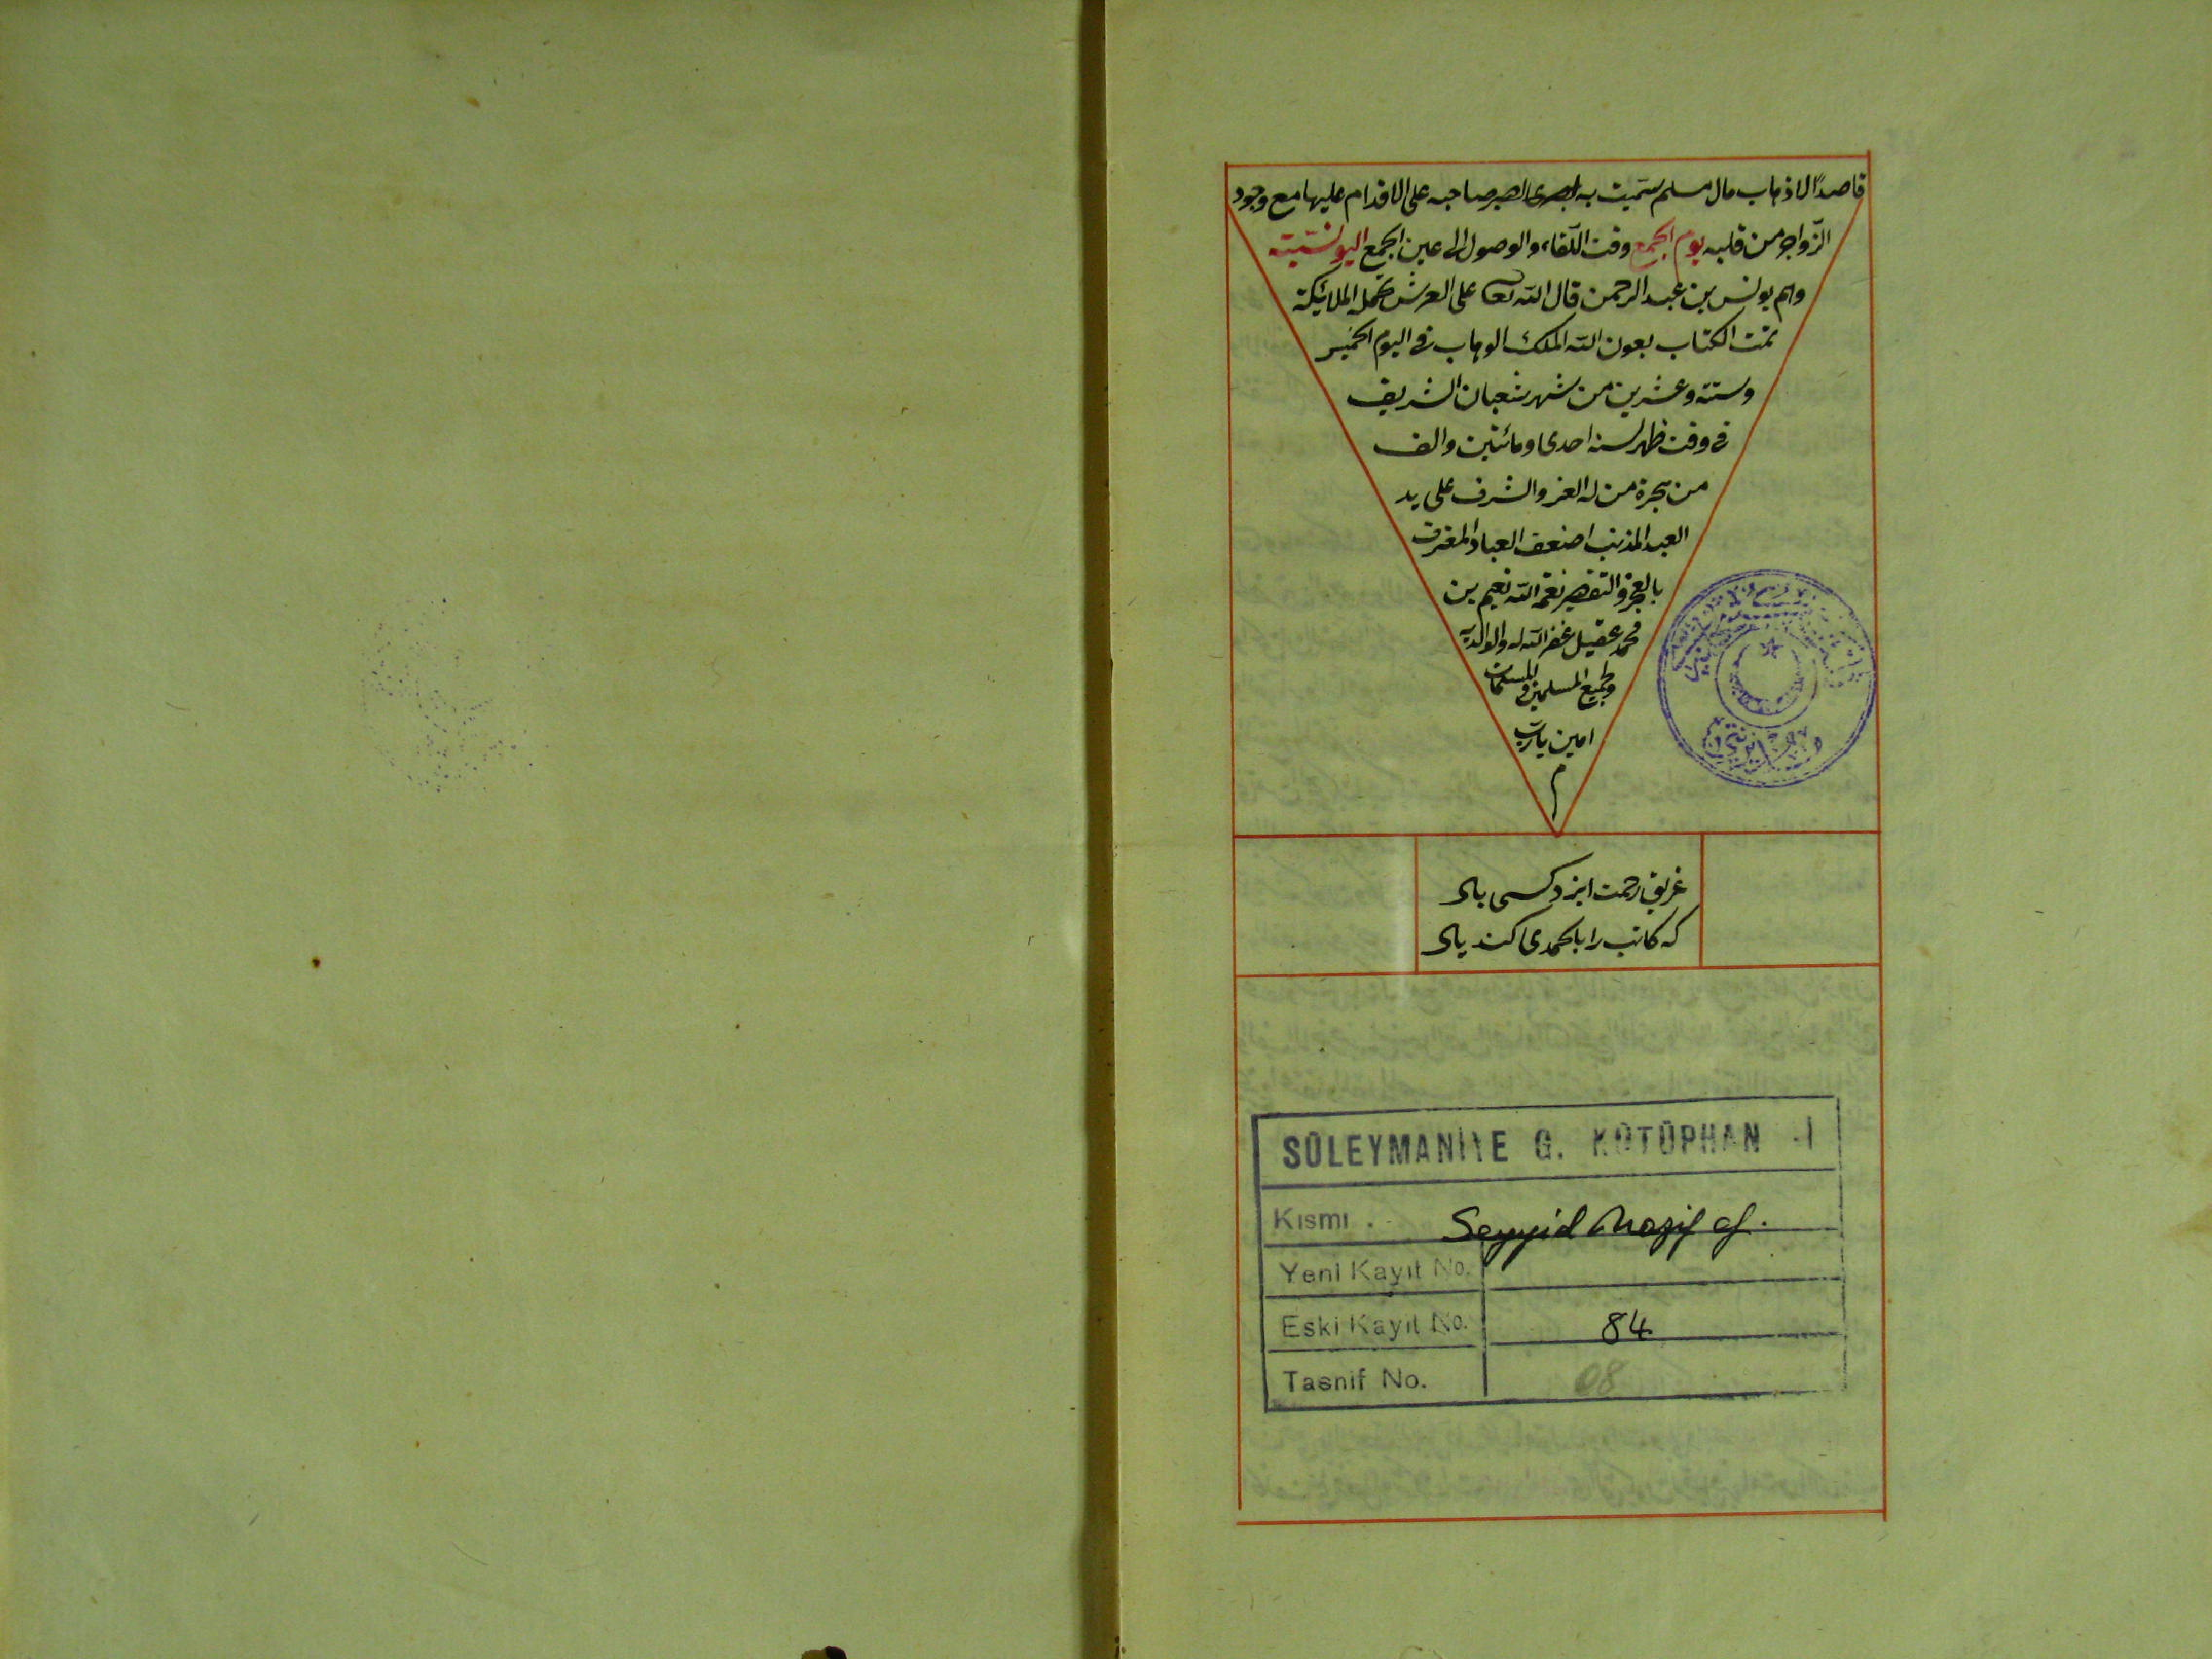 قاصدًا لاذهاب مال مسلم سميت به لصبر صاحبه على الاقدام عليها مع وجود
الزواجر من قلبه يوم الجمع وقت اللقاء والوصول الى عين الجمع اليونسية
وهم يونس بن عبد الرحمن قال الله تعالى على العرش تحمله الملائكة
تمت الكتاب بعون الله الملك الوهاب فى اليوم الخميس
وستة وعشرين من شهر شعبان الشريف
فى وقت ظهر لسنه احدى ومائتين والف
من هجرة من له العز والشرف على يد
العبد المذنب اضعف العباد المعترف
بالعجز والتقصير نعمة الله نعيم بن
محمد عقيل غفر الله له ولوالديه
ولجميع المسلمين والمسلمات
امين يارب
م
غريق رحمت ايزد كسى باد
كه كاتب را بالحمدى كند ياد
SÜLEYMANİYE G. KÜTÜPHAN
Kısmı Seyyid Nazif ef.
Yeni Kayıt No.
Eski Kayıt No. 84
Tasnif No. 08